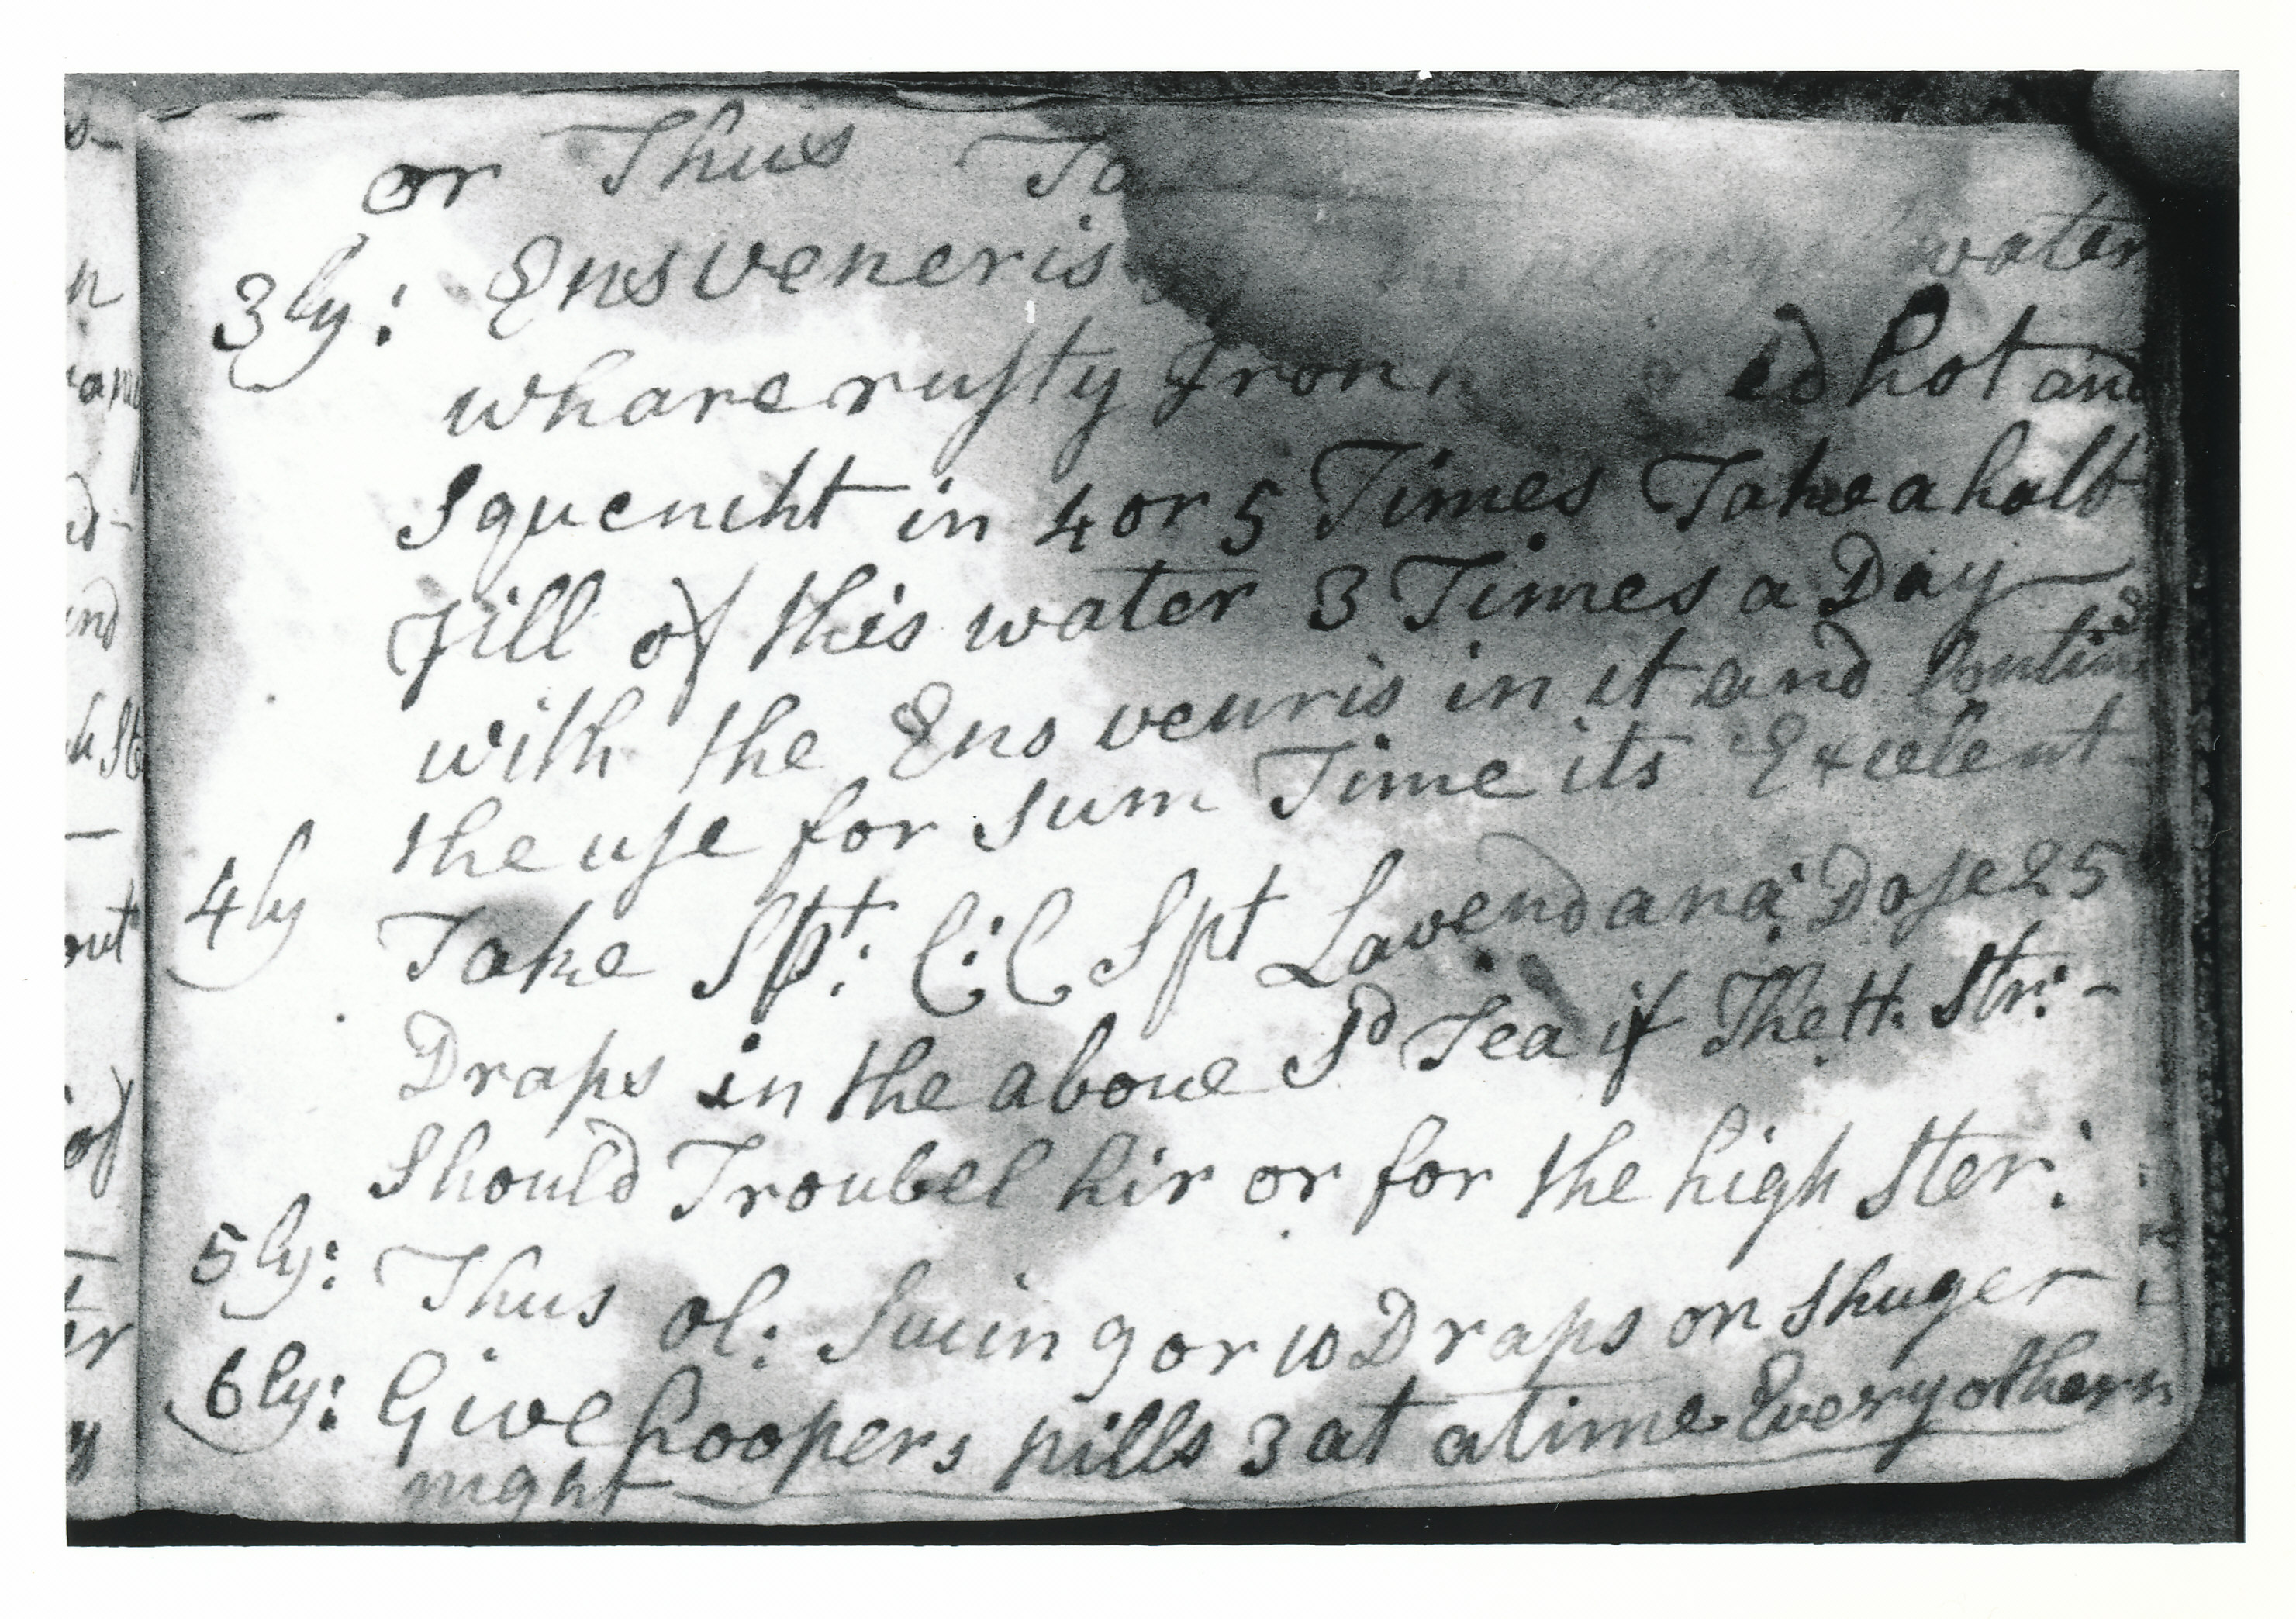 or Thus
3ly: Ens veneris water
whare rusty Iron hot and
Squencht in 4 or 5 Times Take a half
Jill of this water 3 Times a Day
with the Ens veneris in it and
the use for sum Time its Excelent
4ly Take Spt: C:C Spt Lavendana: Dose 25
Draps in the above Sd Tea if The H: Str:-
Should Troubel hir or for the high Ster:
5ly: Thus ol: Sucin 9 or 10 Draps on Shuger
6ly: Give hoopers pills 3 at a time Every other
night